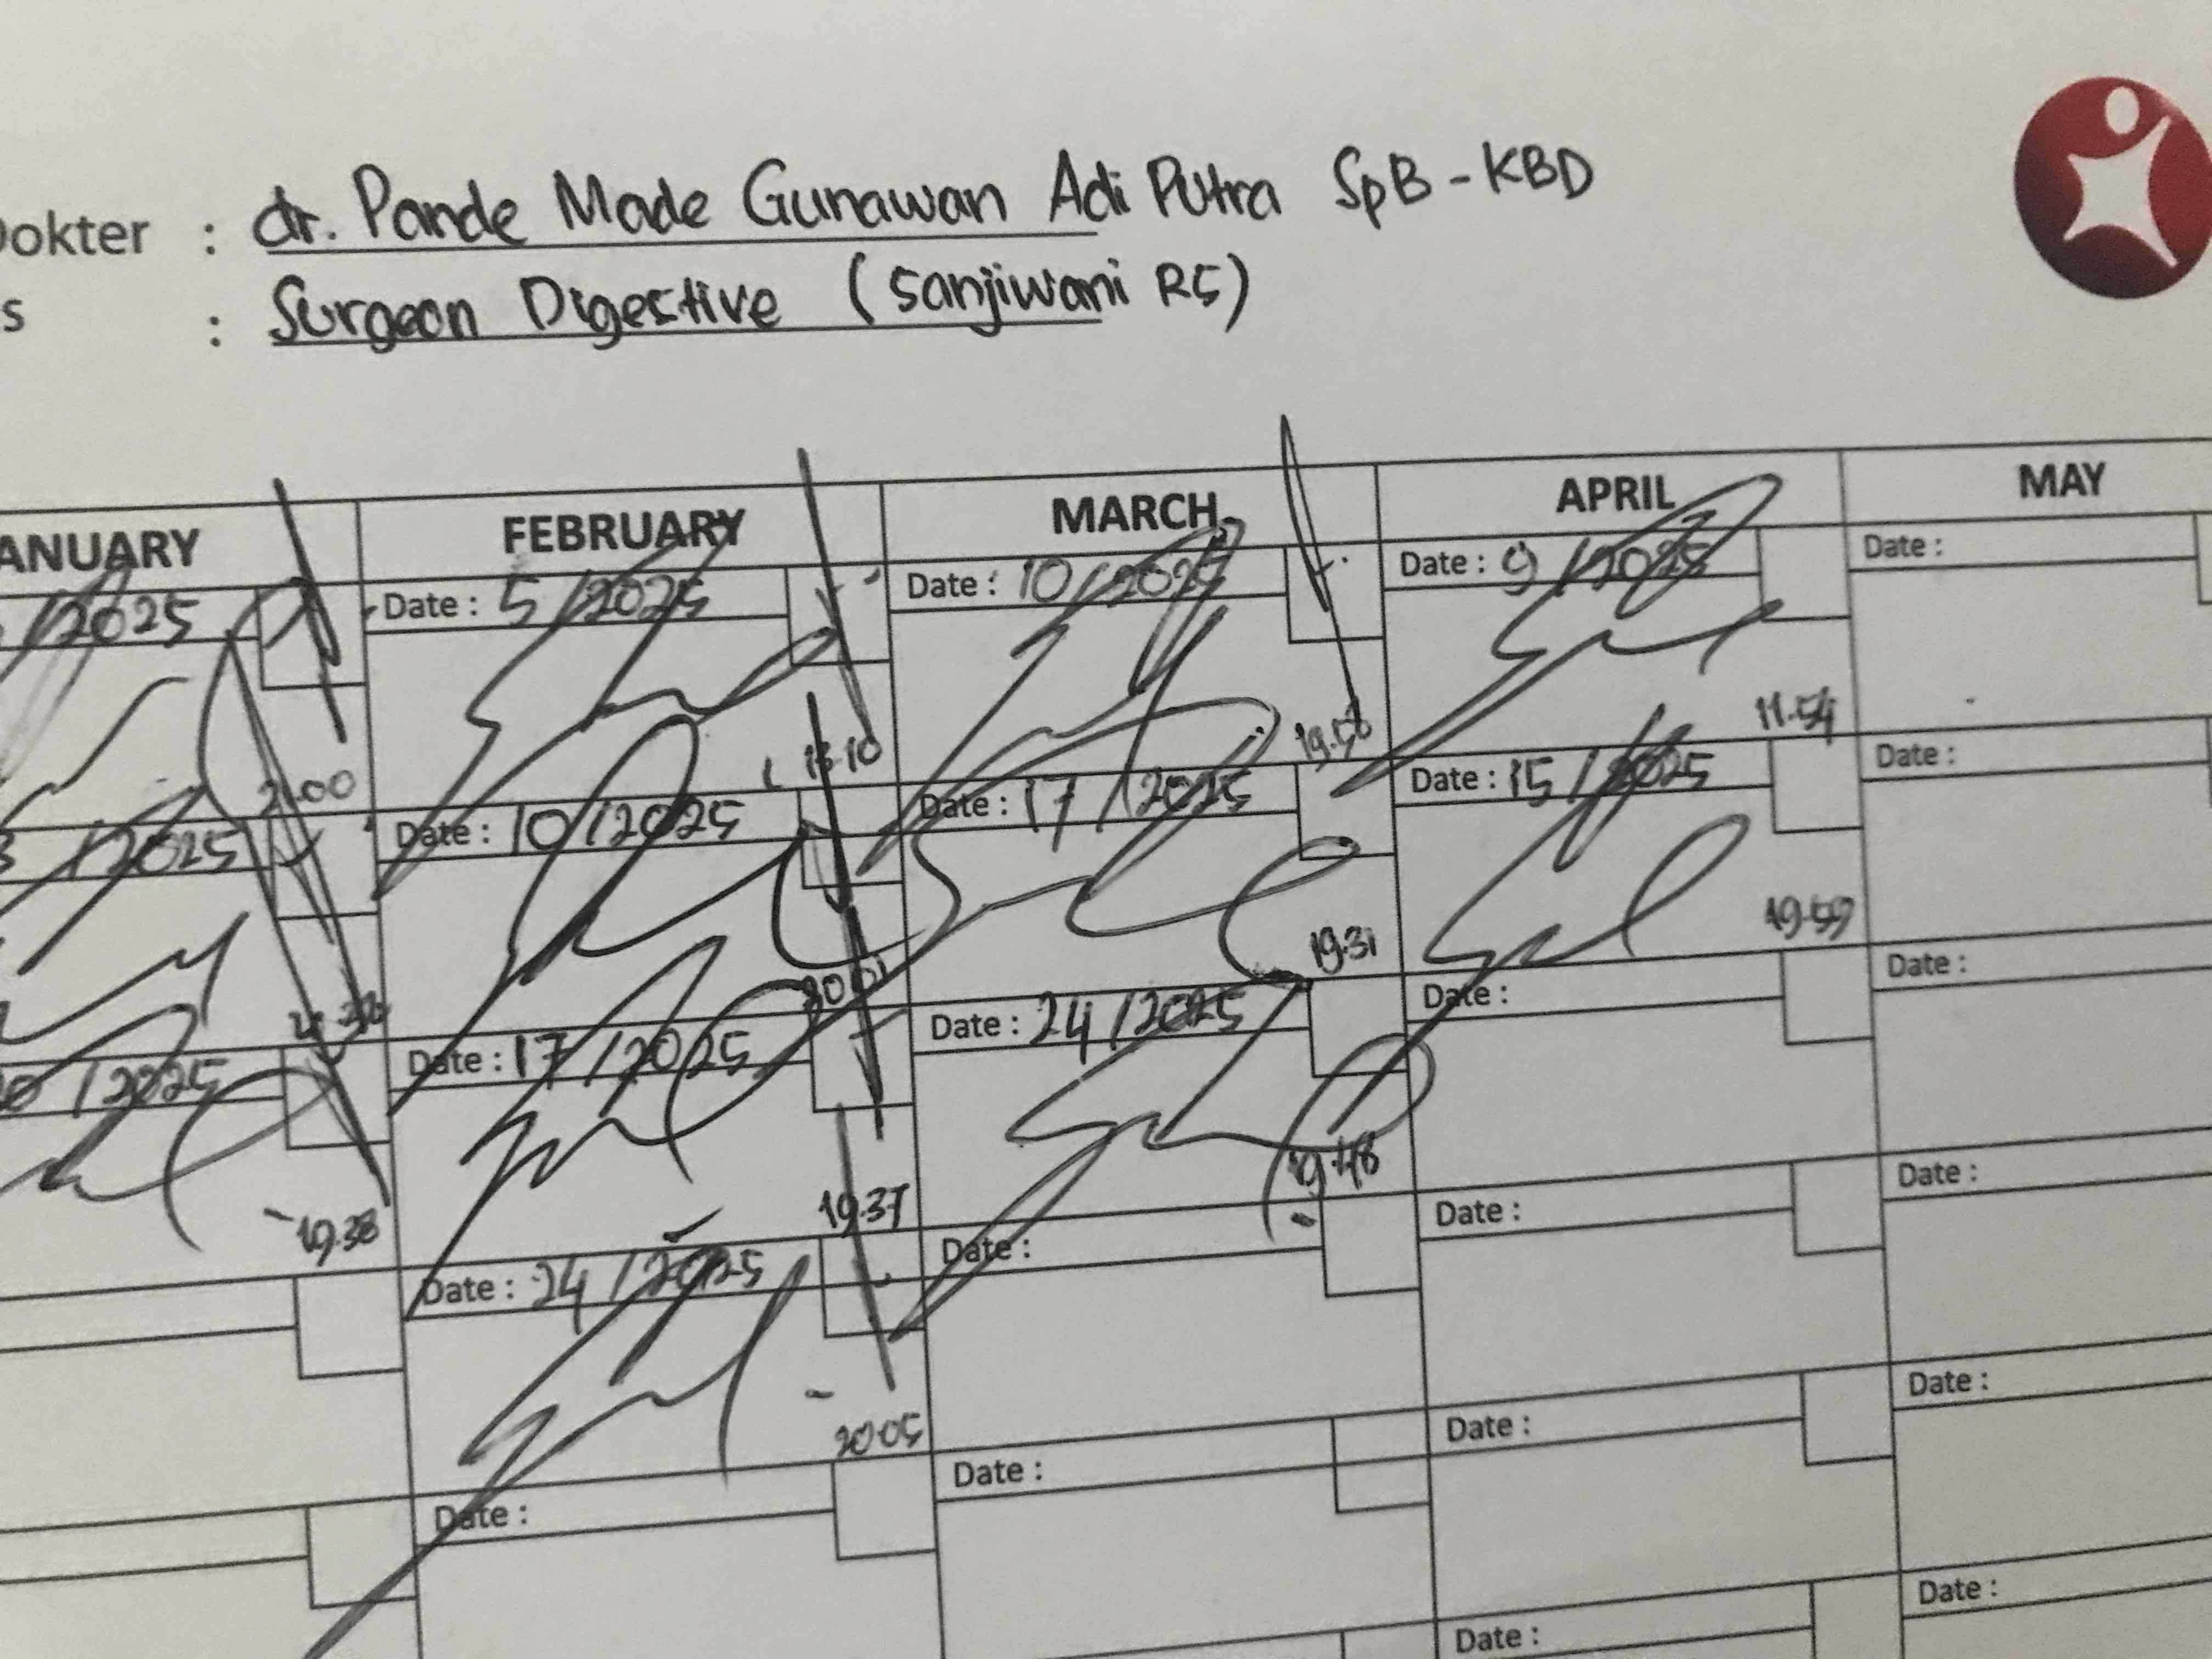 Dokter : dr. Pande Made Gunawan Adi Putra SpB - KBD
s : Surgeon Digestive (Sanjiwani RS)
ANUARY FEBRUARY MARCH APRIL MAY
/2025 Date : 5 /2025 Date : 10/2025 Date : 9 /2025 Date :
19.58 11.54
/2025 Date : 10/2025 Date : 17 /2025 Date : 15 /2025 Date :
19.31 19.59
/2025 Date : 17 /2025 Date : 24 /2025 Date : Date :
19.38 19.37 19.48
Date : 24 /2025 Date : Date : Date :
20.05
Date : Date : Date : Date :
Date : Date :